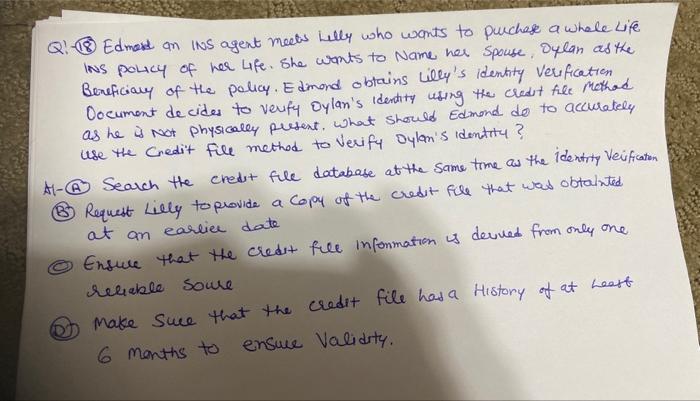 Q:-⑱ Edmond an INS agent meets Lilly who wants to purchase a whole Life
INS policy of her Life. She wants to Name her Spouse, Dylan as the
Beneficiary of the policy. Edmond obtains Lilly's identity Verification
Document decides to verify Dylan's Identity using the credit file Method
as he is Not physically present. What should Edmond do to accurately
use the Credit File method to Verify Dylan's Identity?
A1-Ⓐ Search the credit file database at the same time as the identity Verification
Ⓑ Request Lilly to provide a copy of the credit file that was obtainted
at an earlier date
Ⓒ Ensure that the credit file information is derived from only one
reliable Soure
Ⓓ Make Sure that the credit file has a History of at Least
6 Months to ensure Validity.